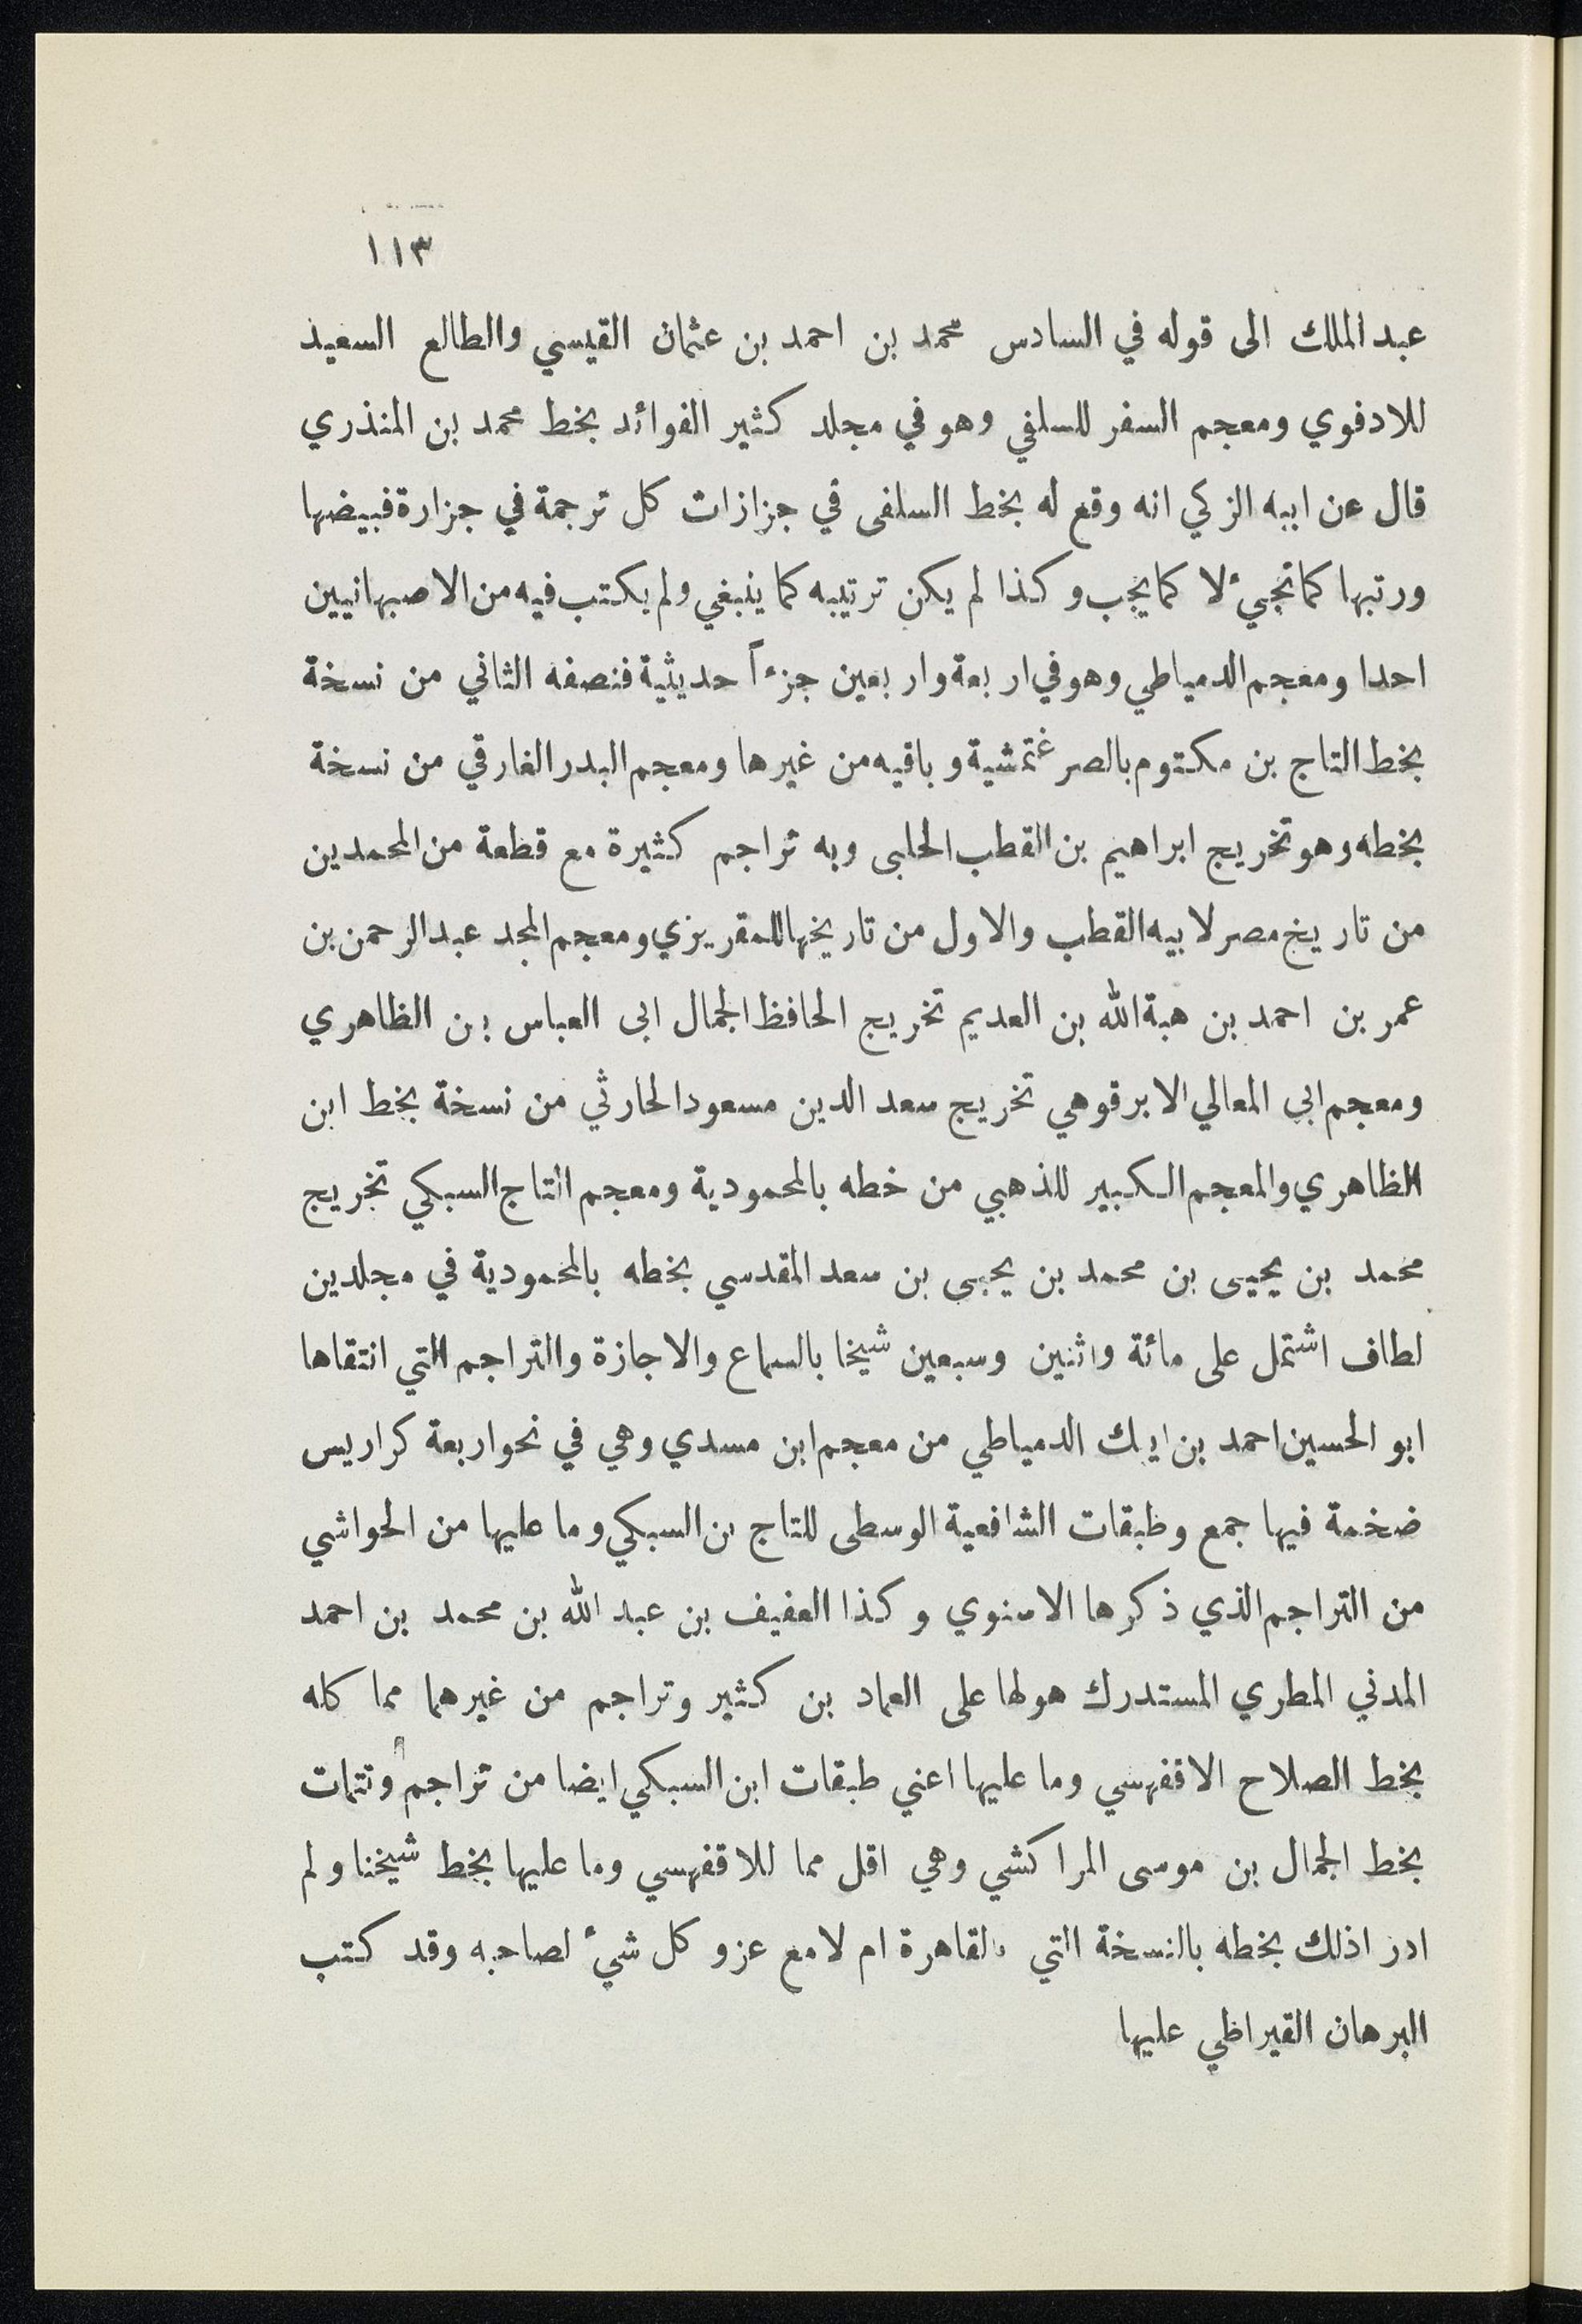 ١١٣
عبد الملك الى قوله في السادس محمد بن احمد بن عثمان القيسي والطالع السعيد
للادفوي ومعجم السفر للسلفي وهو في مجلد كثير الفوائد بخط محمد بن المنذري
قال عن ابيه الزكي انه وقع له بخط السلفى في جزازات كل ترجمة في جزارة فبيضها
ورتبها كما تجيء لا كما يجب وكذا لم يكن ترتيبه كما ينبغي ولم يكتب فيه من الاصبهانيين
احدا ومعجم الدمياطي وهو في اربعة واربعين جزءاً حديثية فنصفه الثاني من نسخة
بخط التاج بن مكتوم بالصرغتمشية وباقيه من غيرها ومعجم البدر الفارقي من نسخة
بخطه وهو تخريج ابراهيم بن القطب الحلبى وبه تراجم كثيرة مع قطعة من المحمدين
من تاريخ مصر لابيه القطب والاول من تاريخها للمقريزي ومعجم المجد عبد الرحمن بن
عمر بن احمد بن هبة الله بن العديم تخريج الحافظ الجمال ابى العباس بن الظاهري
ومعجم ابي المعالي الابرقوهي تخريج سعد الدين مسعود الحارثي من نسخة بخط ابن
الظاهري والمعجم الكبير للذهبي من خطه بالمحمودية ومعجم التاج السبكي تخريج
محمد بن يحيى بن محمد بن يحيى بن سعد المقدسي بخطه بالمحمودية في مجلدين
لطاف اشتمل على مائة واثنين وسبعين شيخا بالسماع والاجازة والتراجم التي انتقاها
ابو الحسين احمد بن ايبك الدمياطي من معجم ابن مسدي وهي في نحو اربعة كراريس
ضخمة فيها جمع وطبقات الشافعية الوسطى للتاج بن السبكي وما عليها من الحواشي
من التراجم الذي ذكرها الاسنوي وكذا العفيف بن عبد الله بن محمد بن احمد
المدني المطري المستدرك هولها على العماد بن كثير وتراجم من غيرهما مما كله
بخط الصلاح الاقفهسي وما عليها اعني طبقات ابن السبكي ايضا من تراجم وتتمات
بخط الجمال بن موسى المراكشي وهي اقل مما للاقفهسي وما عليها بخط شيخنا ولم
ادر اذلك بخطه بالنسخة التي بالقاهرة ام لا مع عزو كل شيء لصاحبه وقد كتب
البرهان القيراطي عليها